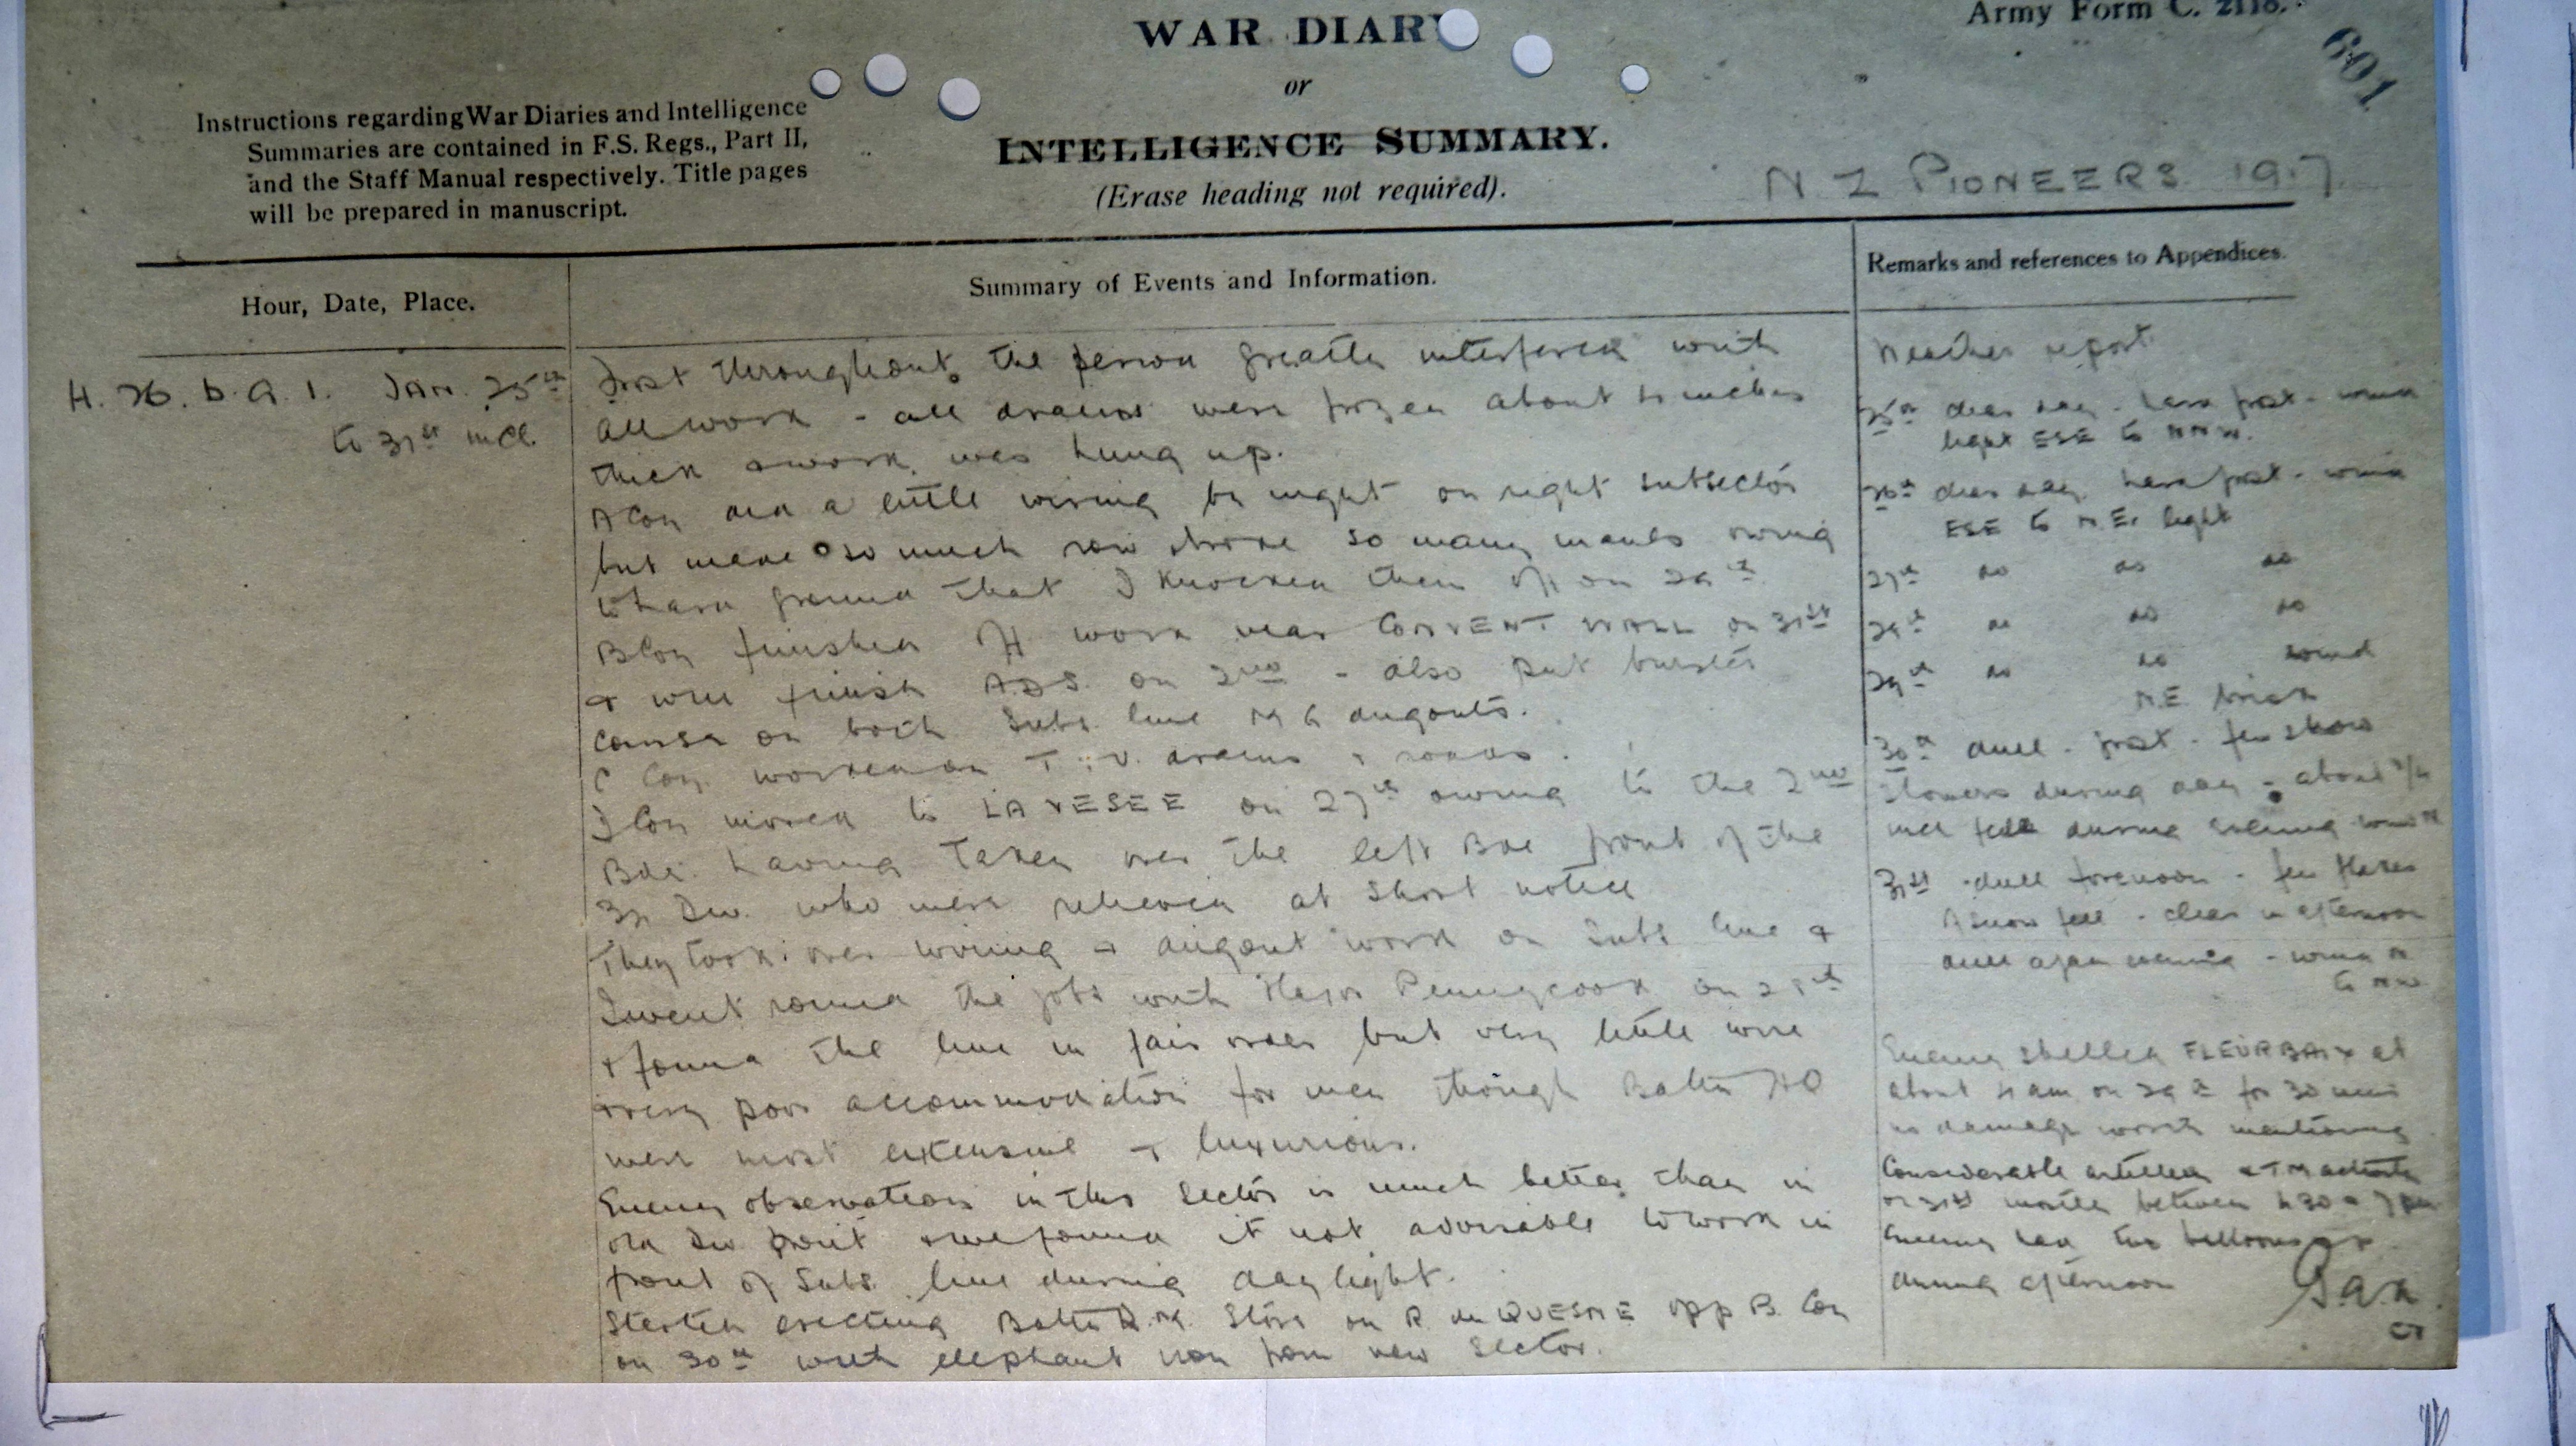 WAR DIARY
Army Form C. 2118.
601
or
Instructions regarding War Diaries and Intelligence
Summaries are contained in F.S. Regs., Part II,
and the Staff Manual respectively. Title pages
will be prepared in manuscript.
INTELLIGENCE SUMMARY.
(Erase heading not required).
N Z PIONEERS 1917
Hour, Date, Place.
Summary of Events and Information.
Remarks and references to Appendices.
H. 26. b. a. 1. JAN. 25th
to 31st incl.
Frost throughout the period greatly interfered with
all work - all drains were frozen about 4 inches
thick & work was hung up.
A Coy did a little wiring by night on right subsector
but made so much row drove so many stakes owing
to hard ground that I knocked them off on 29th
B Coy finished off work near CONVENT WALL on 31st
& will finish ADS on 2nd - also put burster
course on both Subs. line M G dugouts.
C Coy worked on T. & V. drains & roads.
D Coy moved to LAVESEE on 27th owing to the 2nd
Bde. having taken over the left Bde front of the
Div. who were relieved at short notice
They took over wiring & dugout work on Subs line &
I went round the jobs with Major Pennycook on 28th
& found the line in fair order but very little wire
& very poor accommodation for men though Battn HQ
were most extensive & luxurious.
Enemy observation in this sector is much better than in
old Div. front & we found it not advisable to work in
front of Subs. line during daylight.
Started erecting Battn Q.M. Store on R. du QUESNE opp B. Coy
on 30th with elephant iron from new sector.
Weather report
25th clear day - hard frost - wind
light ESE to NNW.
26th clear day hard frost - wind
ESE to N.E. light
27th do do do
28th do do do
29th do do wind
N.E. brisk
30th dull - frost - few snow
showers during day - about 1/4
inch fell during evening wind N
31st dull forenoon - few flakes
of snow fell - clear in afternoon
dull again evening - wind N
to NW
Enemy shelled FLEURBAIX at
about 4 am on 29th for 30 mins
no damage worth mentioning
Considerable artillery & TM activity
on 31st between 4 30 & 7 pm
Enemy had two balloons up
during afternoon